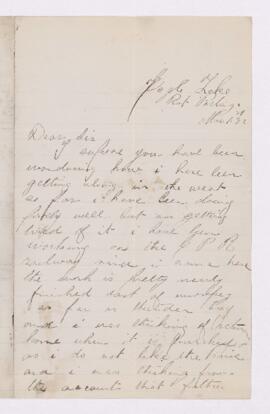 Eagle Lake
Rat Portage
Dear Sir
I supose you have been
wondering how i have been
getting along in the west
so far i have been doing
well but am getting
tired of it i have been
working on the C P R
railway since i came here
the work is pretty nearly
finished east of
as far as thunder bay
and i was thinking of
home when it is finished
as i do not like the
and i was thinking from
the accounts that father